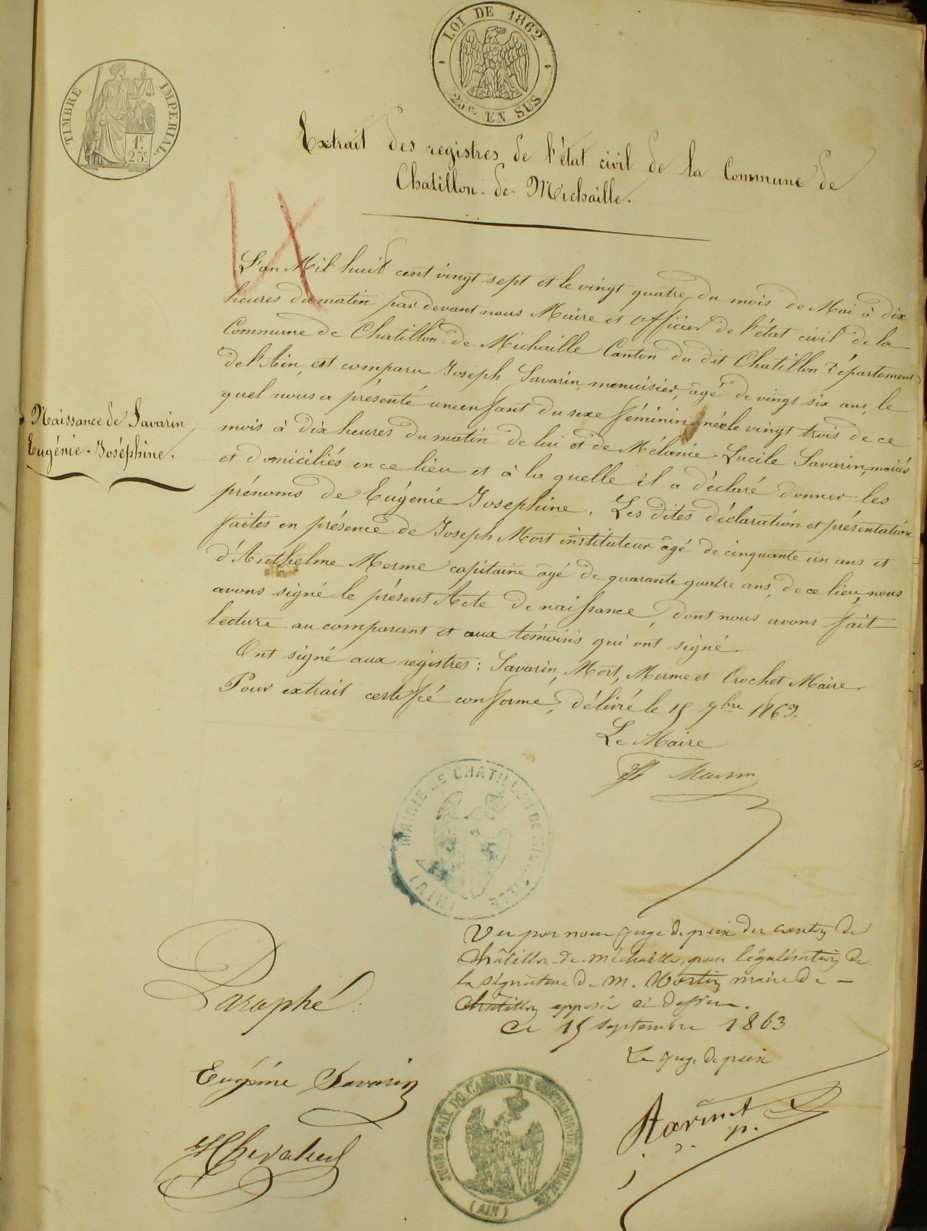 LOI DE 1862
25c. EN SUS
TIMBRE IMPERIAL
1F.
25c.
Extrait des registres de l'état civil de la Commune de
Chatillon-de-Michaille.
L'an Mil huit cent vingt sept et le vingt quatre du mois de Mai à dix
heures du matin par devant nous Maire et officier de l'état civil de la
Commune de Chatillon de Michaille Canton du dit Chatillon Département
de l'Ain, est comparu Joseph Savarin menuisier, âgé de vingt six ans, le
quel nous a présenté un enfant du sexe féminin, née le vingt trois de ce
mois à dix heures du matin de lui et de Mélanie Lucile Savarin, mariés
et domiciliés en ce lieu et à la quelle il a déclaré donner les
prénoms de Eugénie Josephine. Les dites déclaration et présentation
faites en présence de Joseph Mort instituteur âgé de cinquante un ans et
d'Anthelme Merme capitaine âgé de quarante quatre ans, de ce lieu, nous
avons signé le présent Acte de naissance, dont nous avons fait
lecture au comparant et aux témoins qui ont signé.
Ont signé aux registres: Savarin, Mort, Merme et Crochet Maire.
Pour extrait certifié conforme, délivré le 15 7bre 1863.
Le Maire
Naissance de Savarin
Eugénie-Joséphine.
MAIRIE DE CHATILLON DE MICHAILLE
(AIN)
Vu par nous Juge de paix du canton de
Châtillon-de-Michaille, pour légalisation de
la signature de M. maire de
Châtillon apposée ci dessus.
Ce 15 septembre 1863
Le Juge de paix
Paraphé:
Eugénie Savarin
JUGE DE PAIX DU CANTON DE CHATILLON DE MICHAILLE
(AIN)